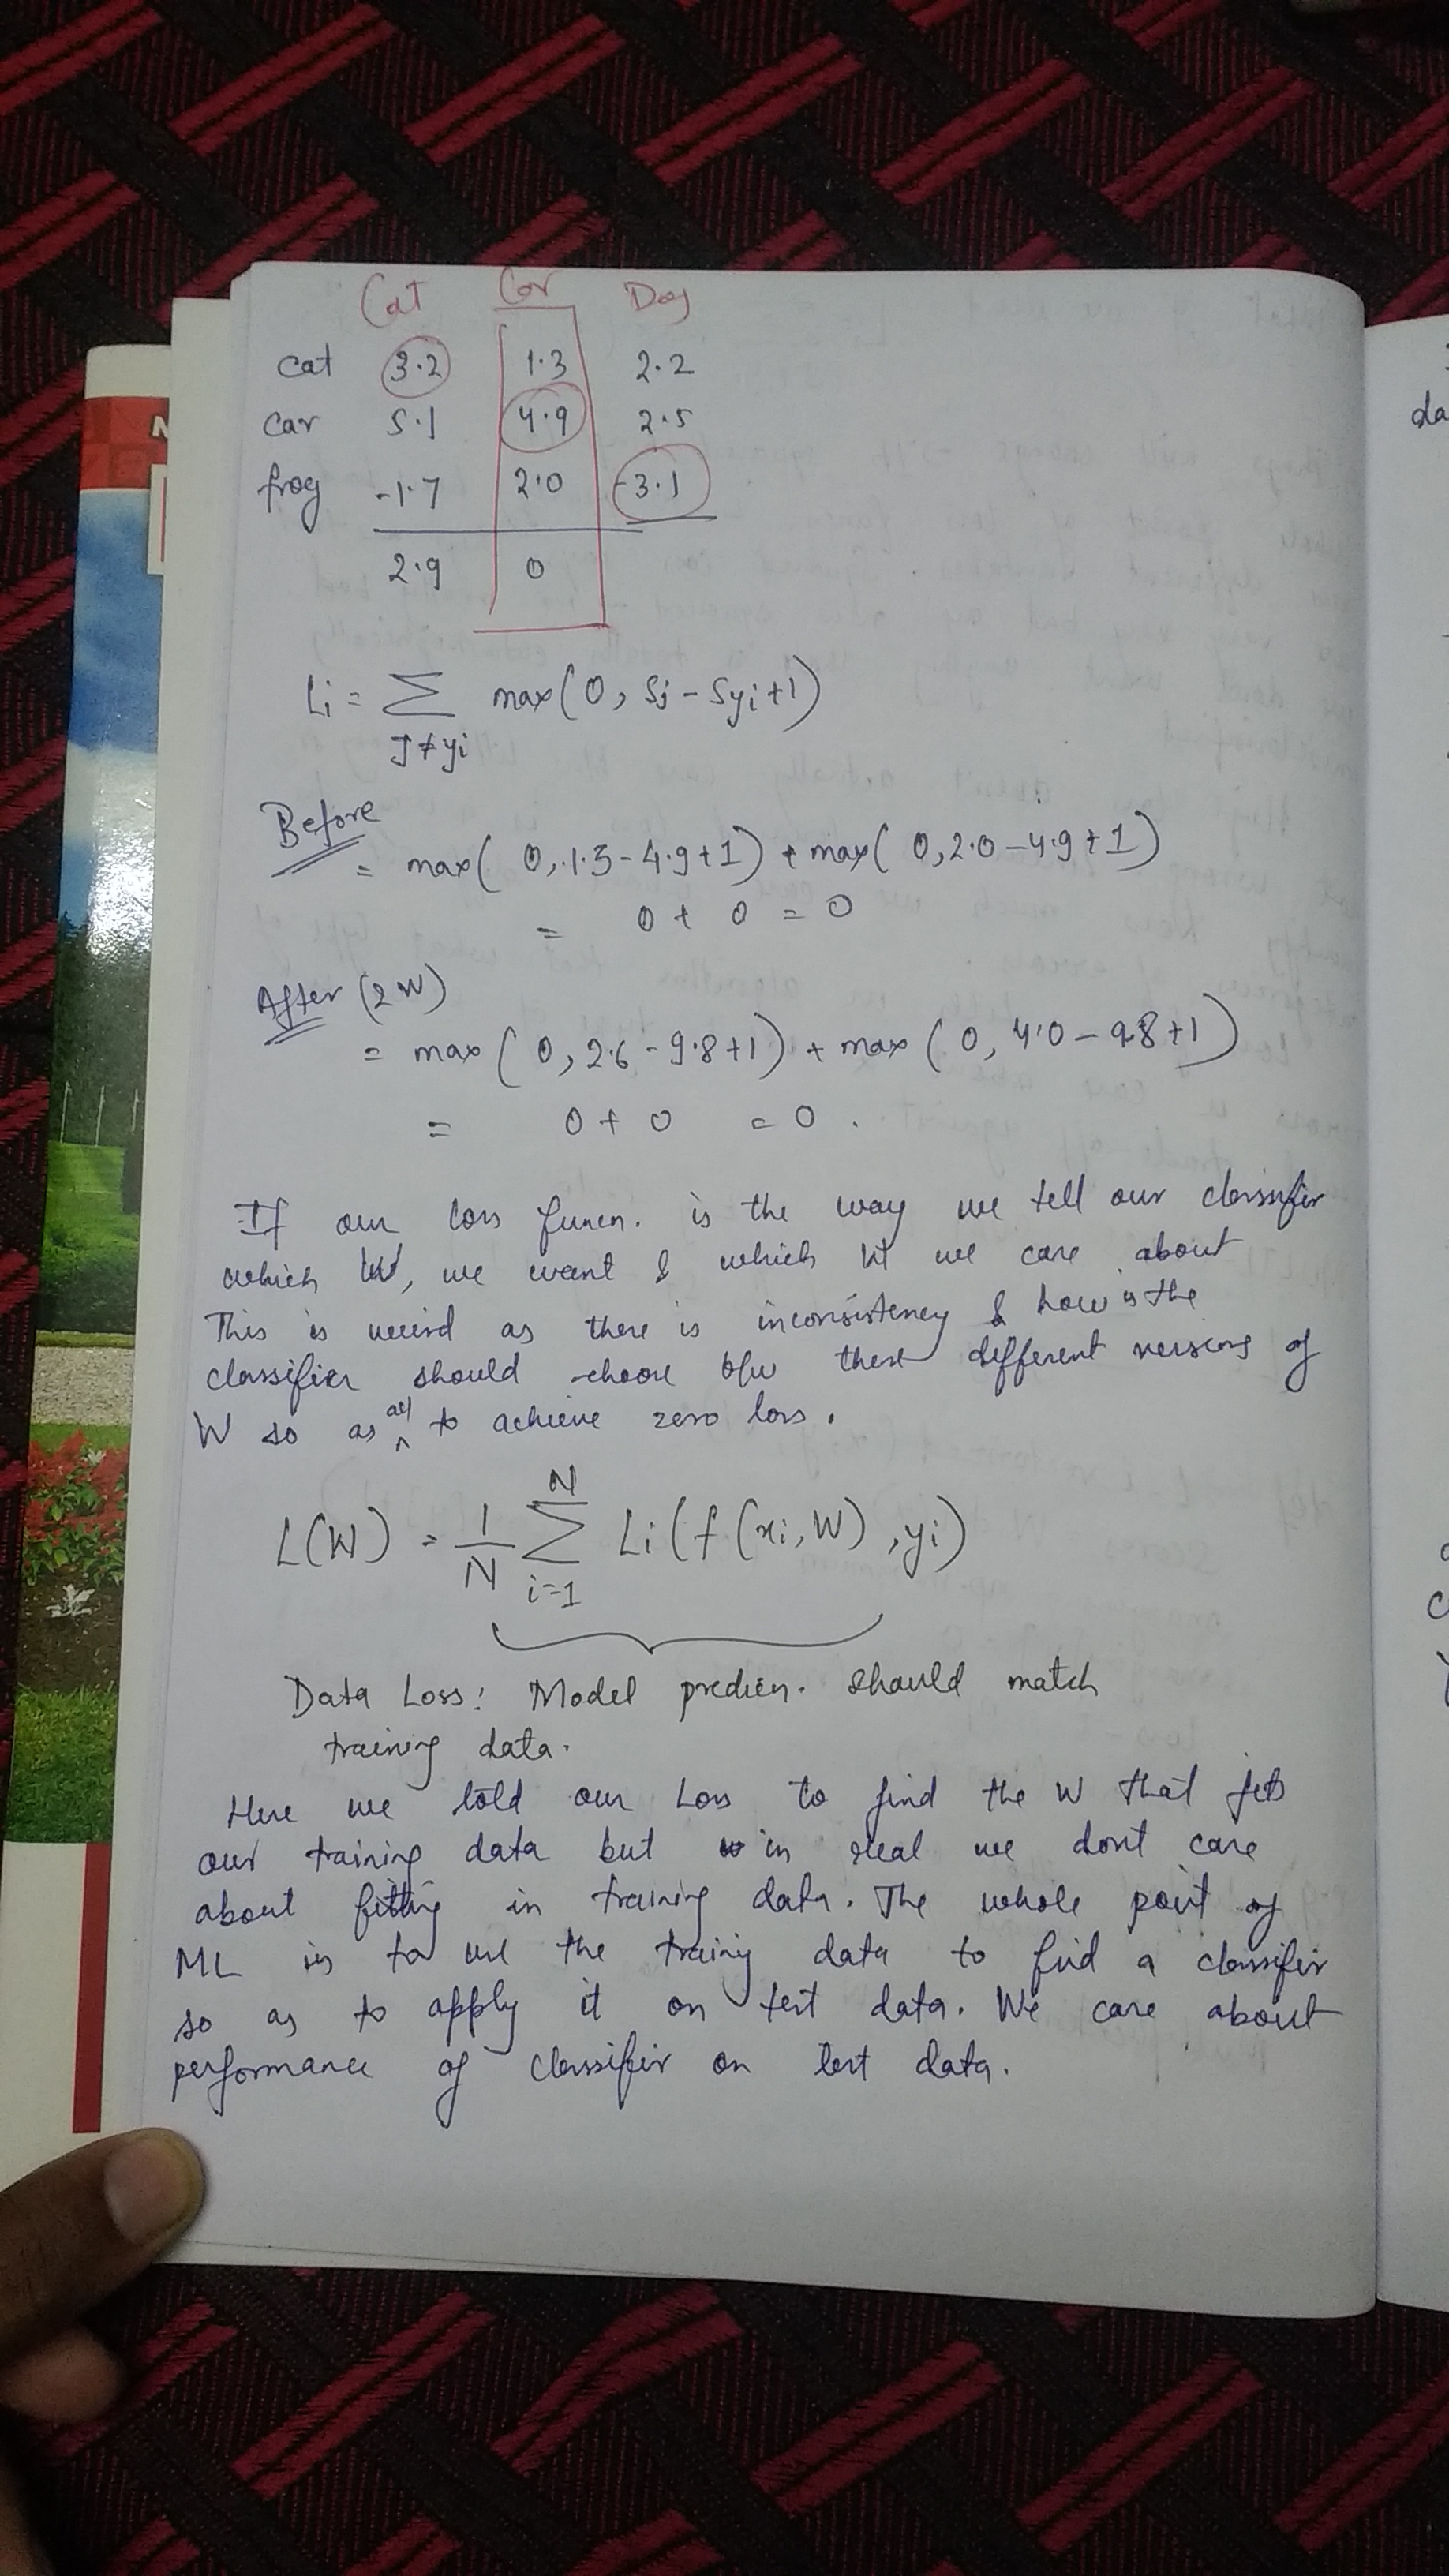 Cat Car Dog
cat 3.2 1.3 2.2
car 5.1 4.9 2.5
frog -1.7 2.0 -3.1
2.9 0
Li = Σ max(0, Sj - Syi+1)
J≠yi
Before
= max( 0, 1.3-4.9+1) + max( 0, 2.0-4.9+1)
= 0 + 0 = 0
After (2W)
= max ( 0, 2.6 - 9.8+1) + max ( 0, 4.0 - 9.8+1)
= 0 + 0 = 0.
If our loss funcn. is the way we tell our classifier
which W, we want & which W we care about
This is weird as there is inconsistency & how is the
classifier should choose b/w these different versions of
W so as all to achieve zero loss.
N
L(W) = 1/N Σ Li(f(xi,W), yi)
i=1
Data Loss: Model predicn. should match
training data.
Here we told our Loss to find the W that fits
our training data but in real we dont care
about fitting in training data. The whole point of
ML is to use the trainig data to find a classifier
so as to apply it on test data. We care about
performance of classifier on test data.
da